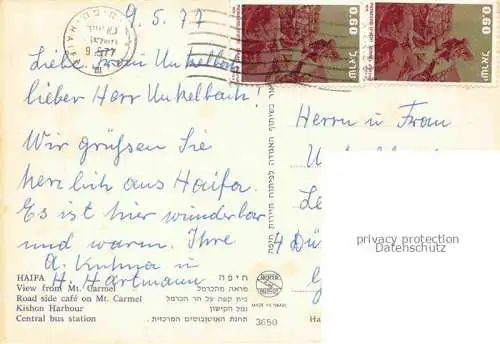 9.5.77
Liebe Frau Unkelbach,
lieber Herr Unkelbach!
Wir grüßen Sie
herzlich aus Haifa.
Es ist hier wunderbar
und warm. Ihre
A. Kuhna u
H. Hartmann
HAIFA
View from Mt. Carmel
Road side café on Mt. Carmel
Kishon Harbour
Central bus station
חיפה
מראה מהכרמל
בית קפה על הר הכרמל
נמל הקישון
תחנת האוטובוסים המרכזית.
MADE IN ISRAEL
3650
0.60
ISRAEL
0.60
ISRAEL
Herrn u Frau
4 Dü
privacy protection
Datenschutz
Ha